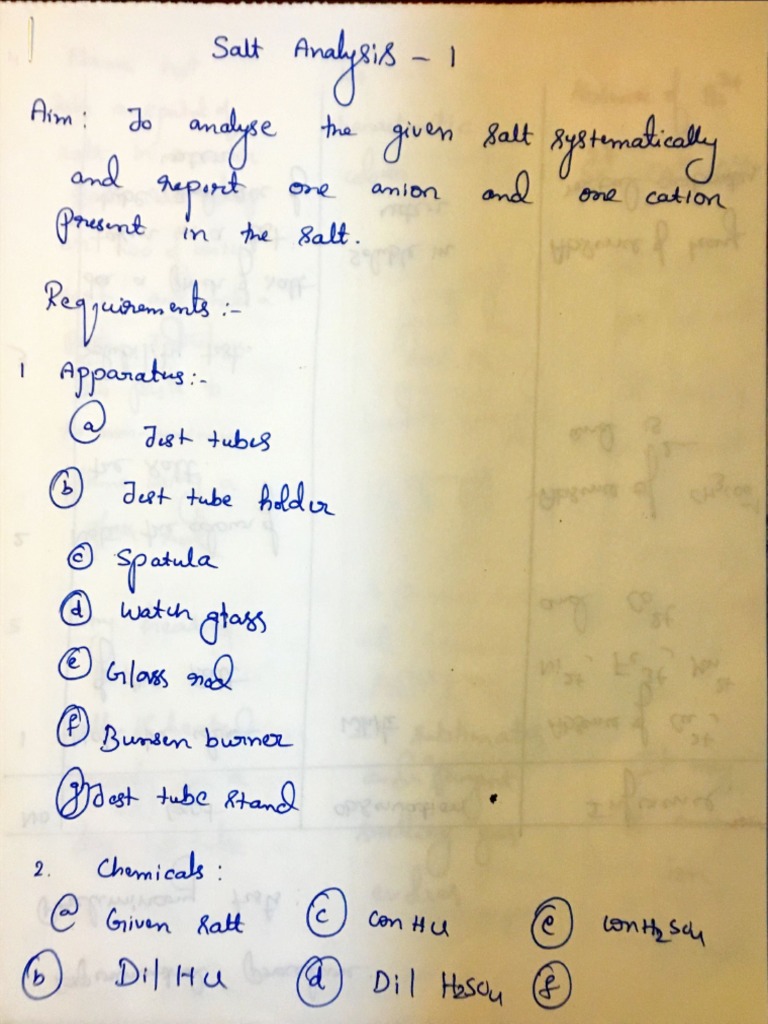 Salt Analysis - 1
Aim: To analyse the given salt systematically
and report one anion and one cation
present in the salt.
Requirements :-
1 Apparatus :-
(a) Test tubes
(b) Test tube holder
(c) Spatula
(d) Watch glass
(e) Glass rod
(f) Bunsen burner
(g) Test tube stand
2. Chemicals :
(a) Given salt (c) con HCl (e) con H2SO4
(b) Dil HCl (d) Dil H2SO4 (f)